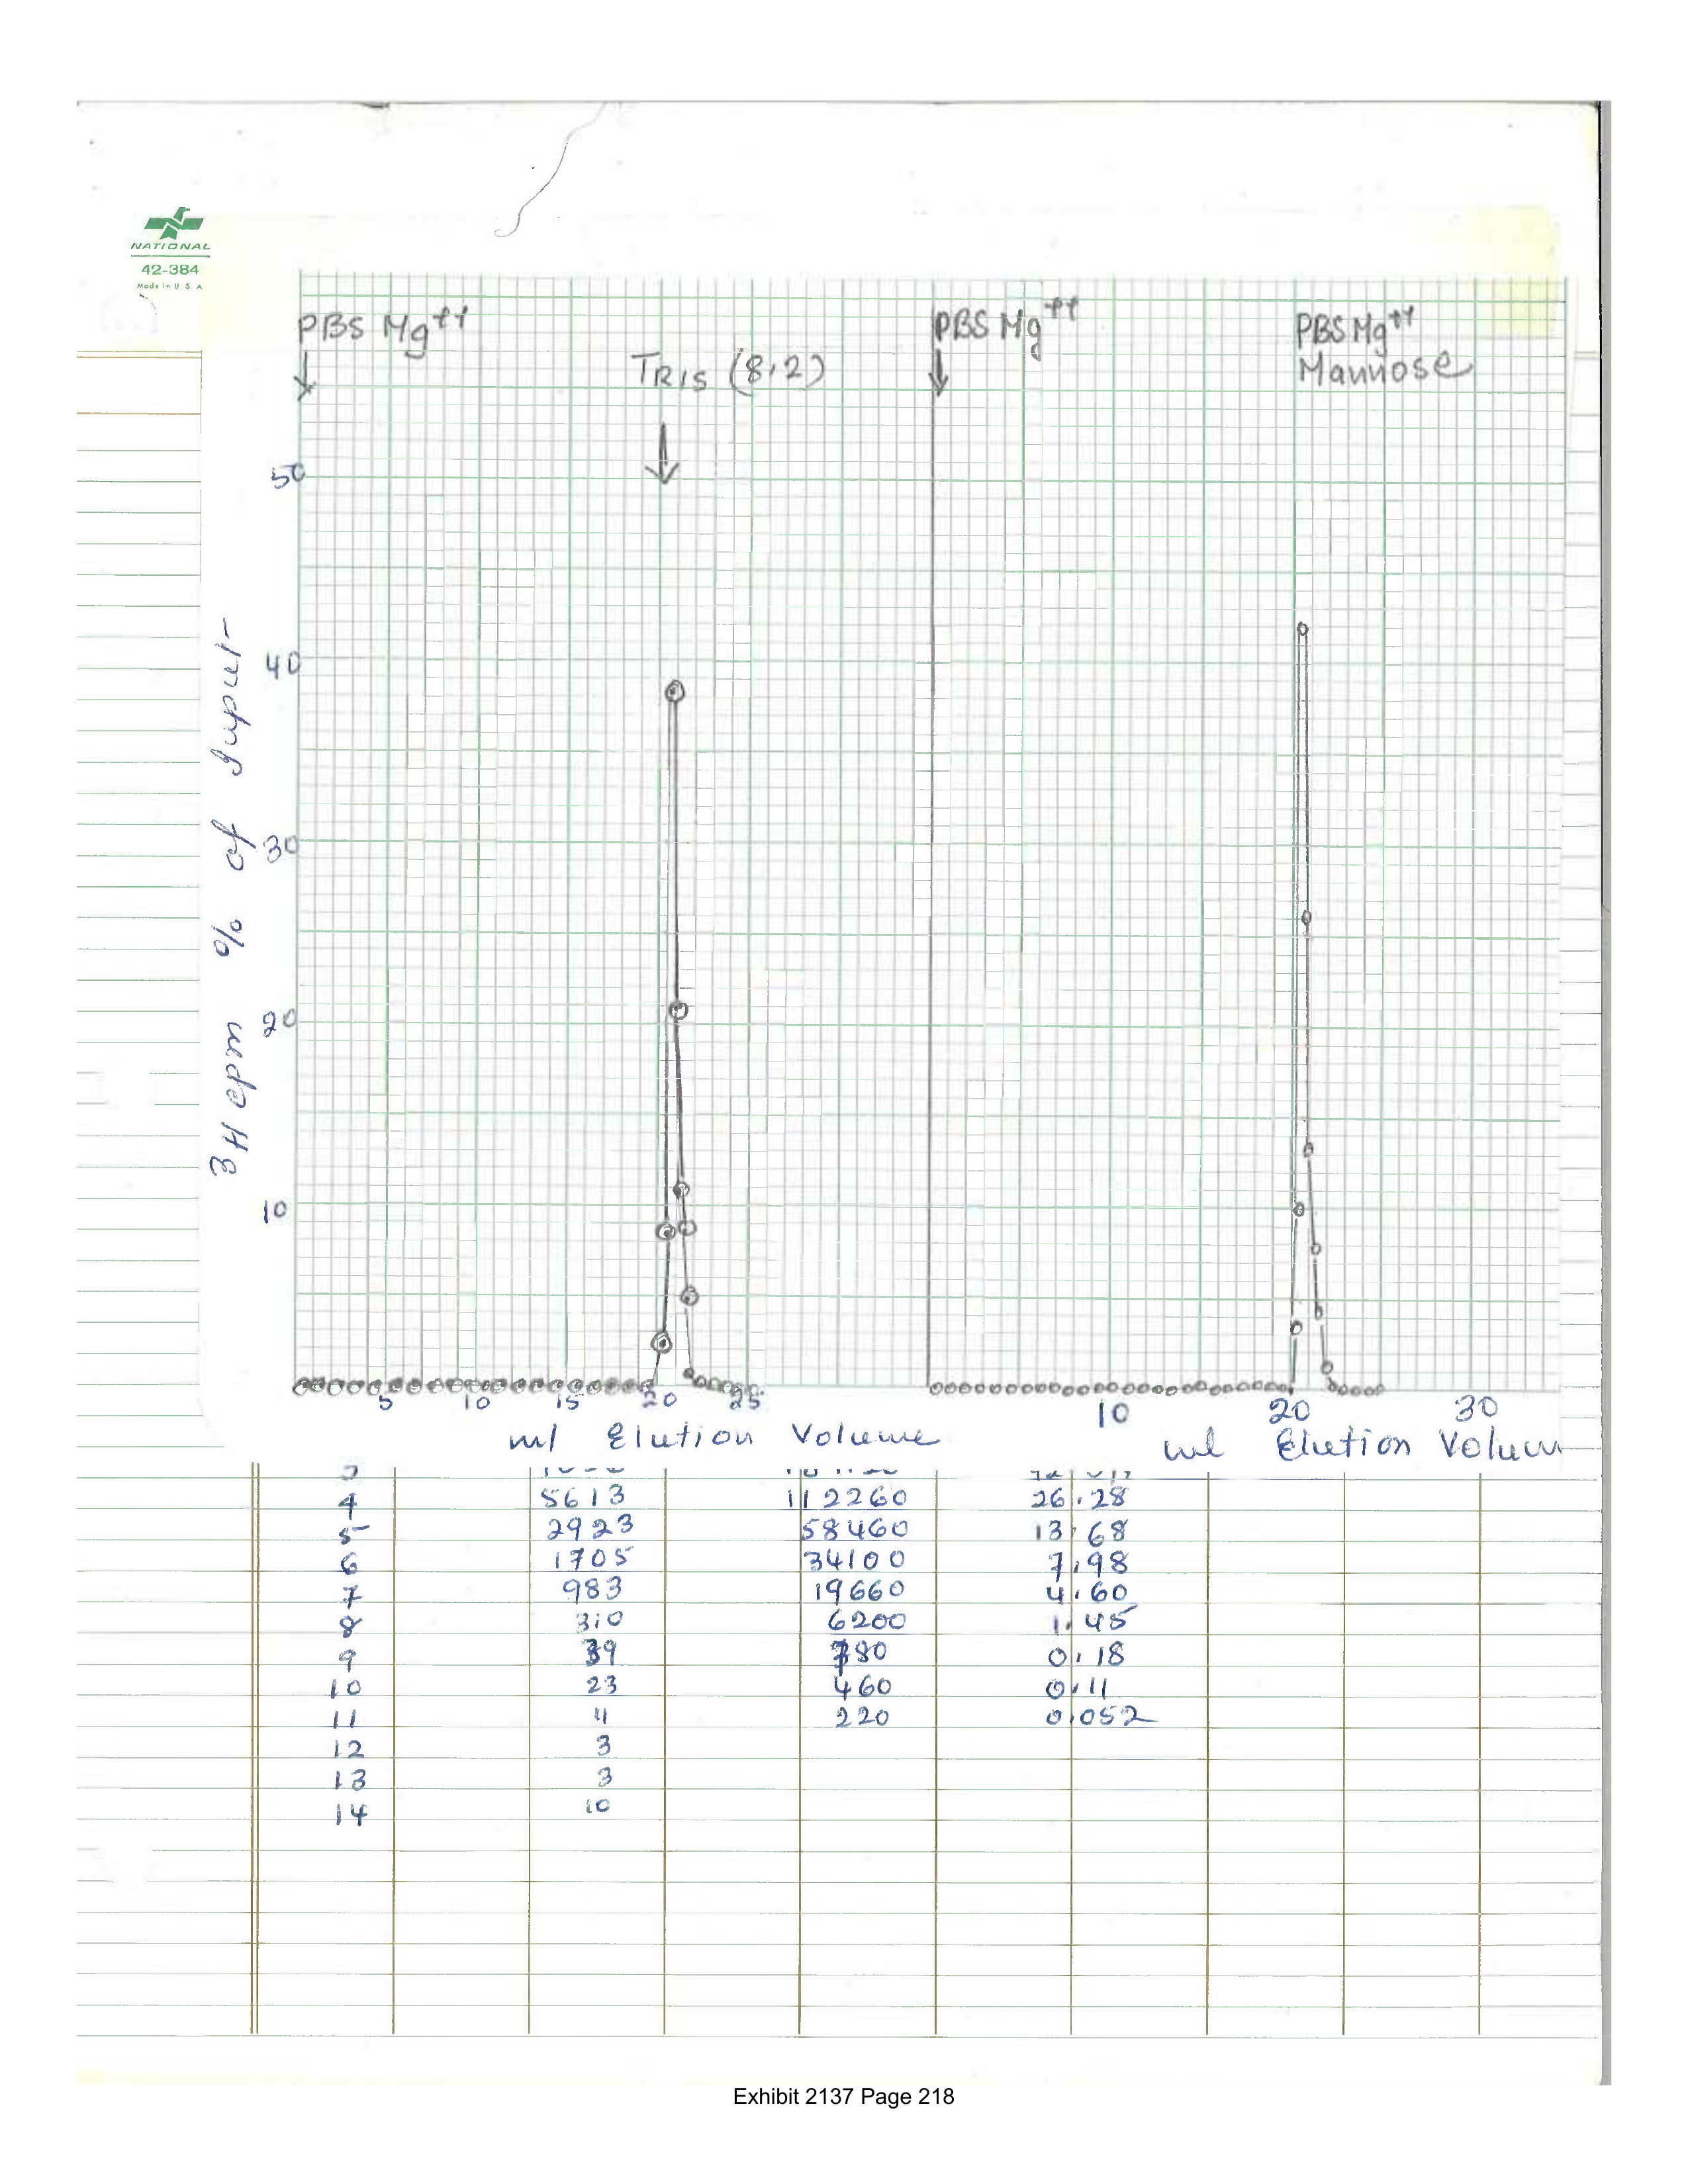 NATIONAL
42-384
Made in U.S.A
PBS Mg++
TRIS (8.2)
PBS Mg++
PBS Mg++
Mannose
50
40
30
20
10
3H cpm % of Input
5 10 15 20 25
10 20 30
ml Elution Volume
ml Elution Volum
4 5613 112260 26.28
5 2923 58460 13.68
6 1705 34100 7.98
7 983 19660 4.60
8 310 6200 1.45
9 39 780 0.18
10 23 460 0.11
11 11 220 0.052
12 3
13 3
14 10
Exhibit 2137 Page 218